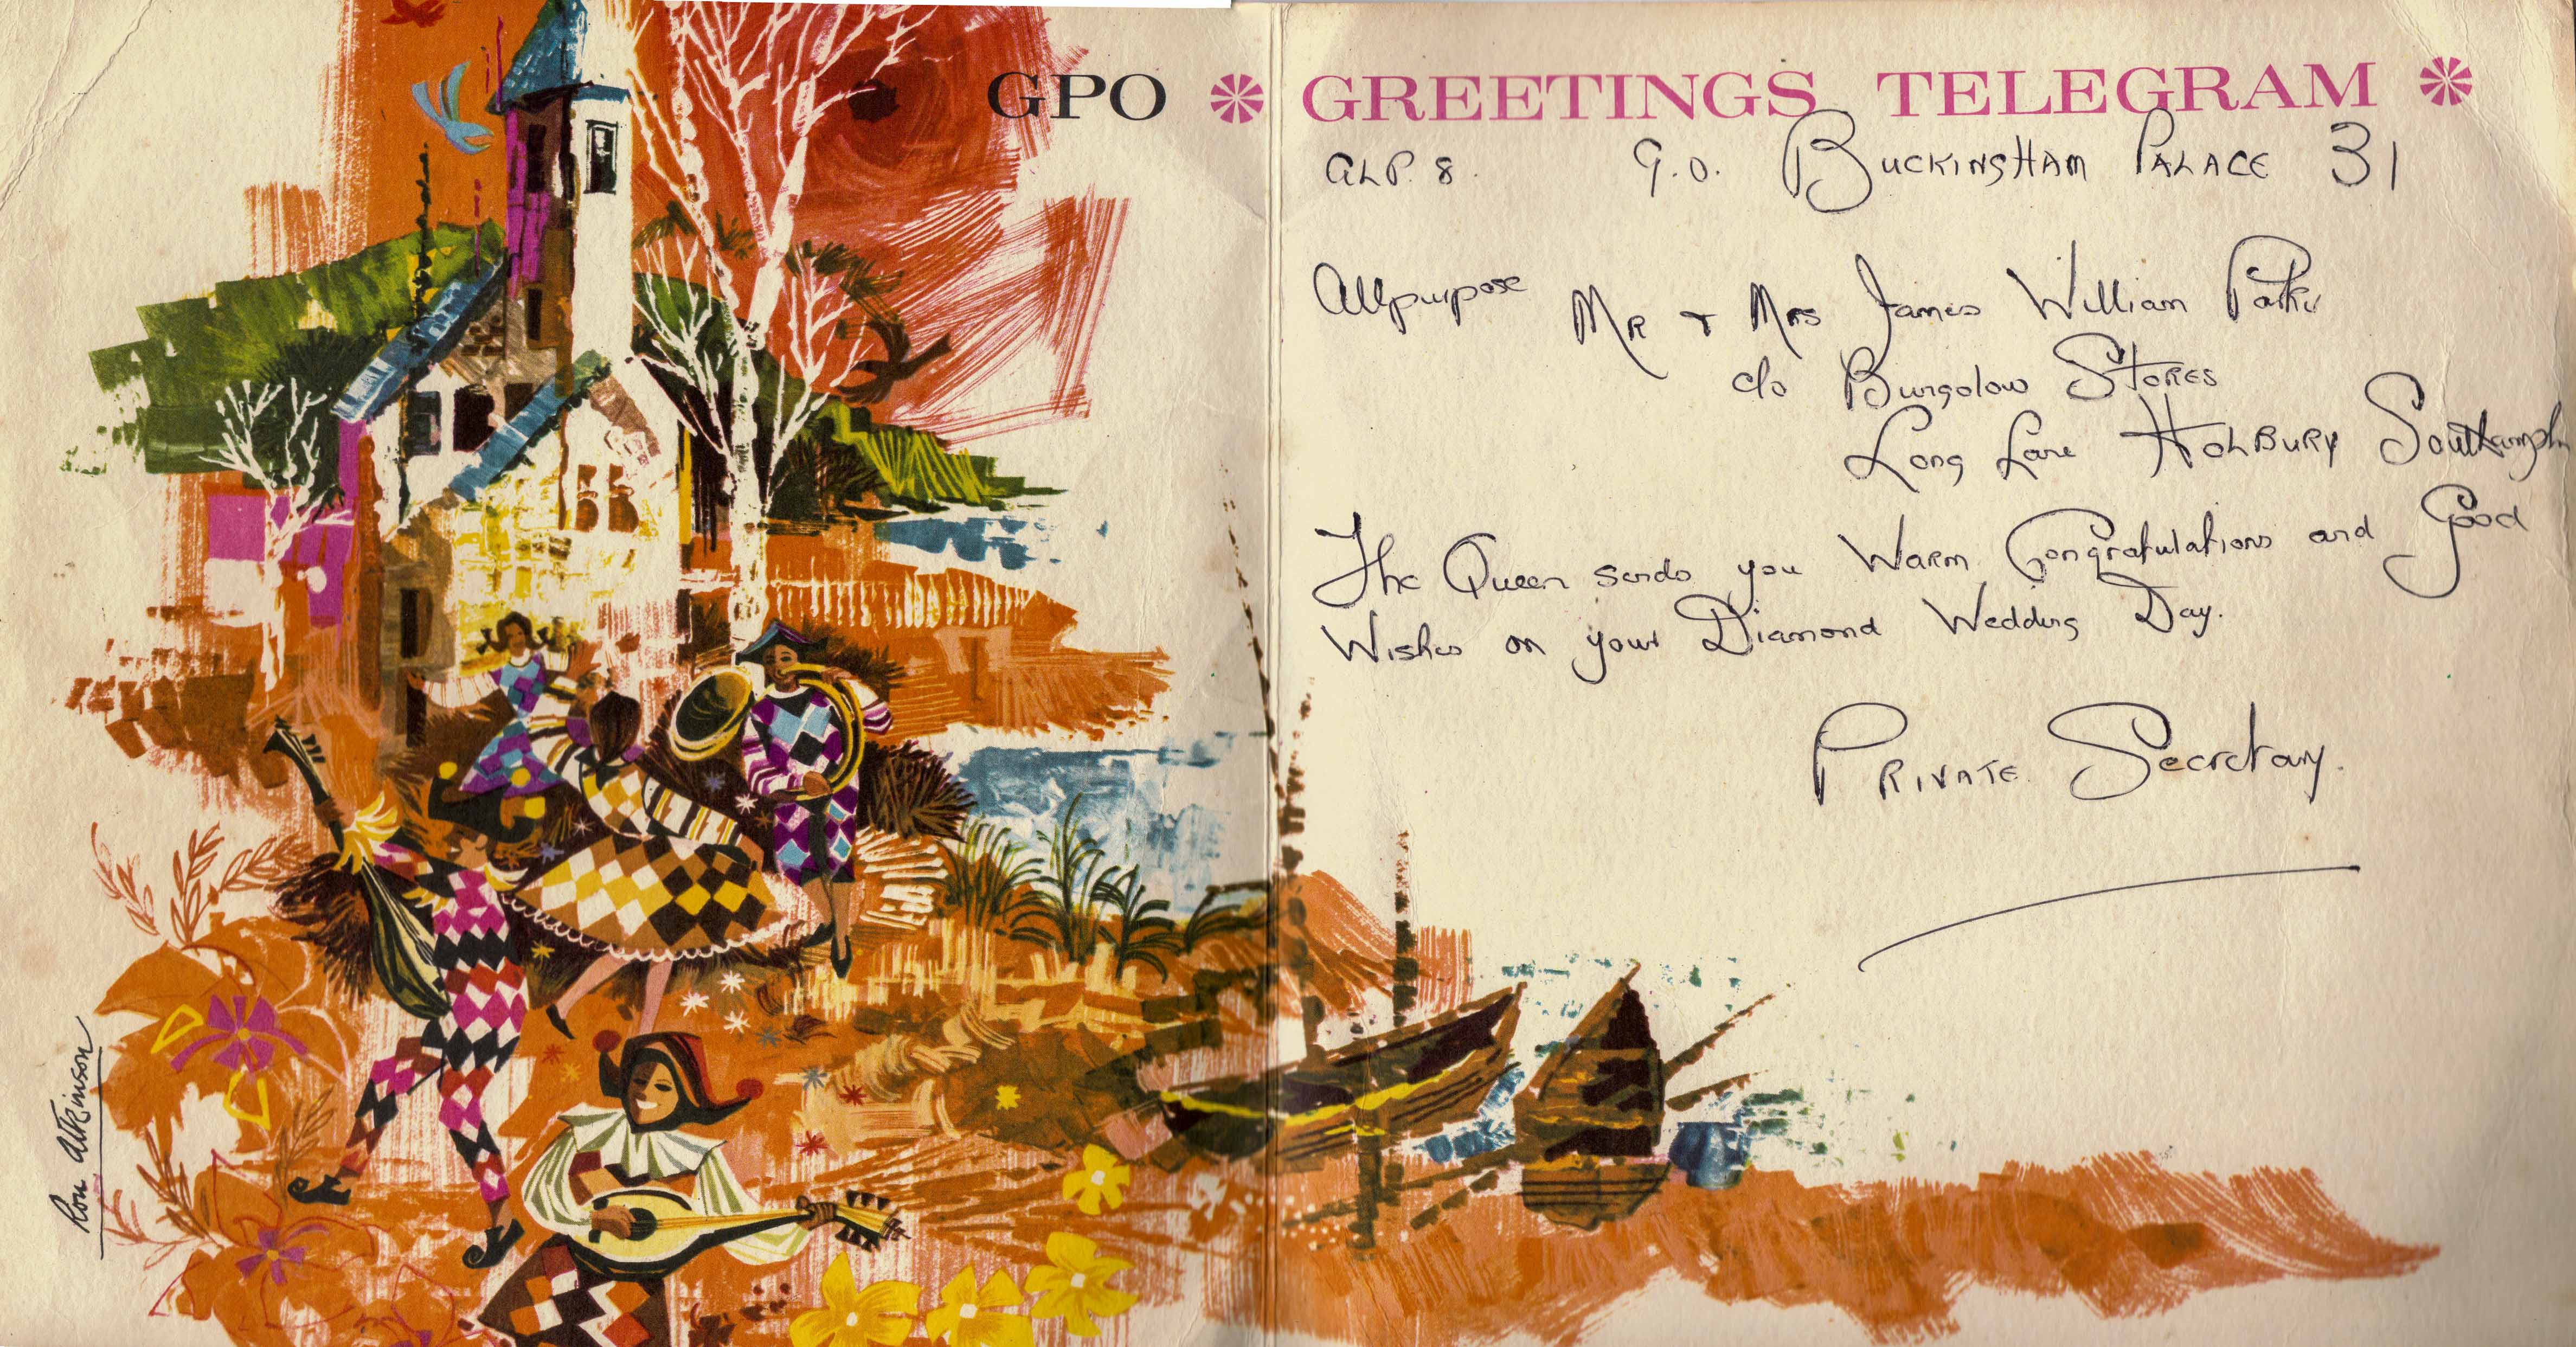 GPO * GREETINGS TELEGRAM *
GLP. 8. 9.0. BUCKINGHAM PALACE 31
Allpurpose Mr & Mrs James William Parker
c/o Bungolow Stores
Long Lane HOLBURY Southampton
The Queen sends you Warm Congratulations and Good
Wishes on your Diamond Wedding Day.
PRIVATE Secretary.
Ron Atkinson